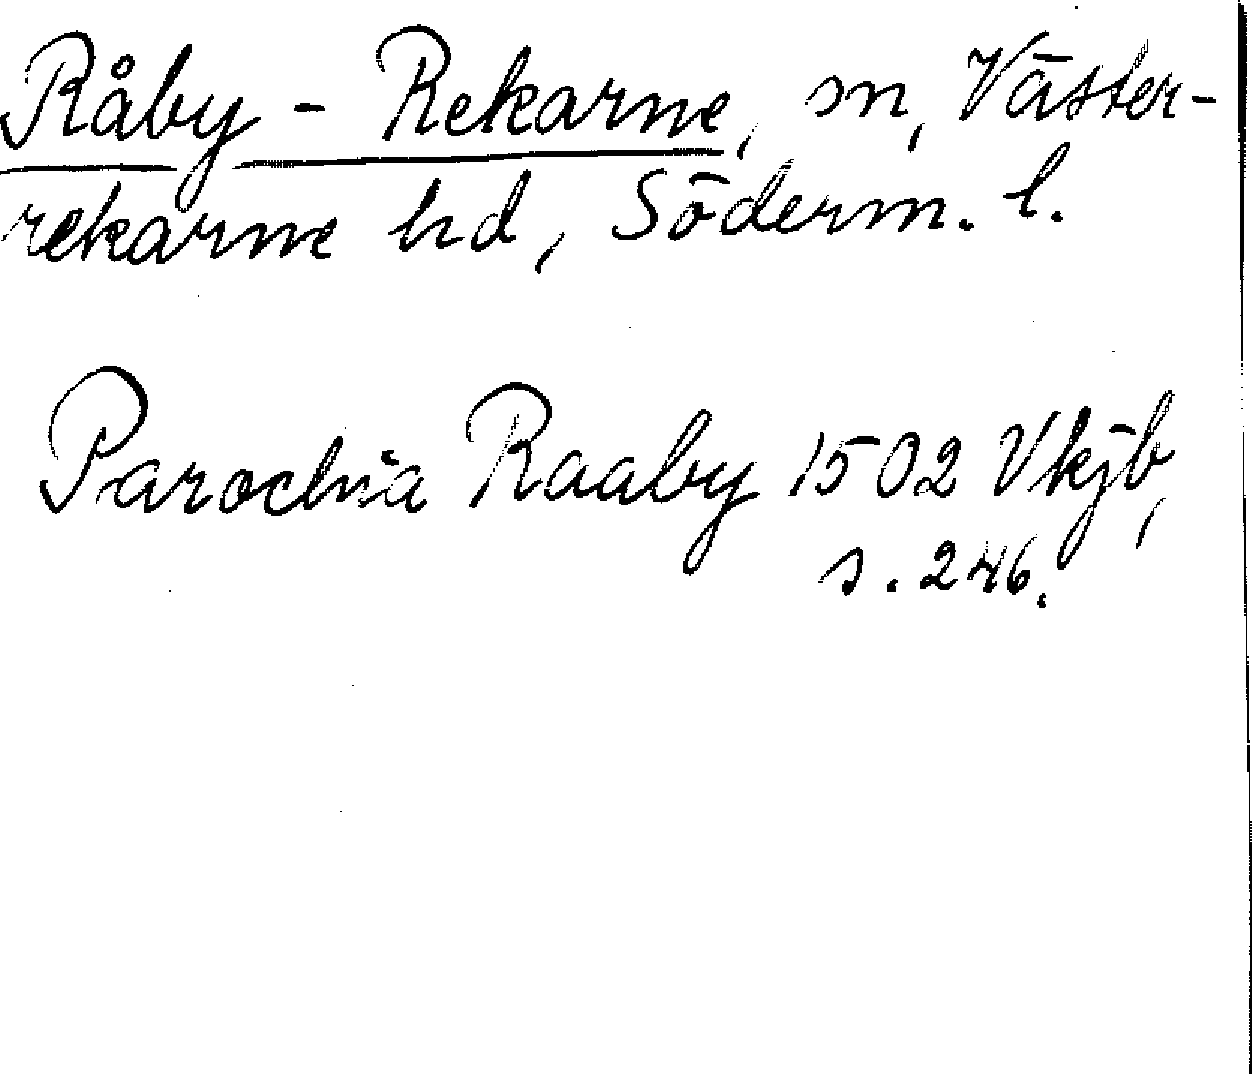 Råby - Rekarne, sn, Väster-
rekarne hd, Söderm. l.
Parochia Raaby 1502 Vkjb,
s. 246.